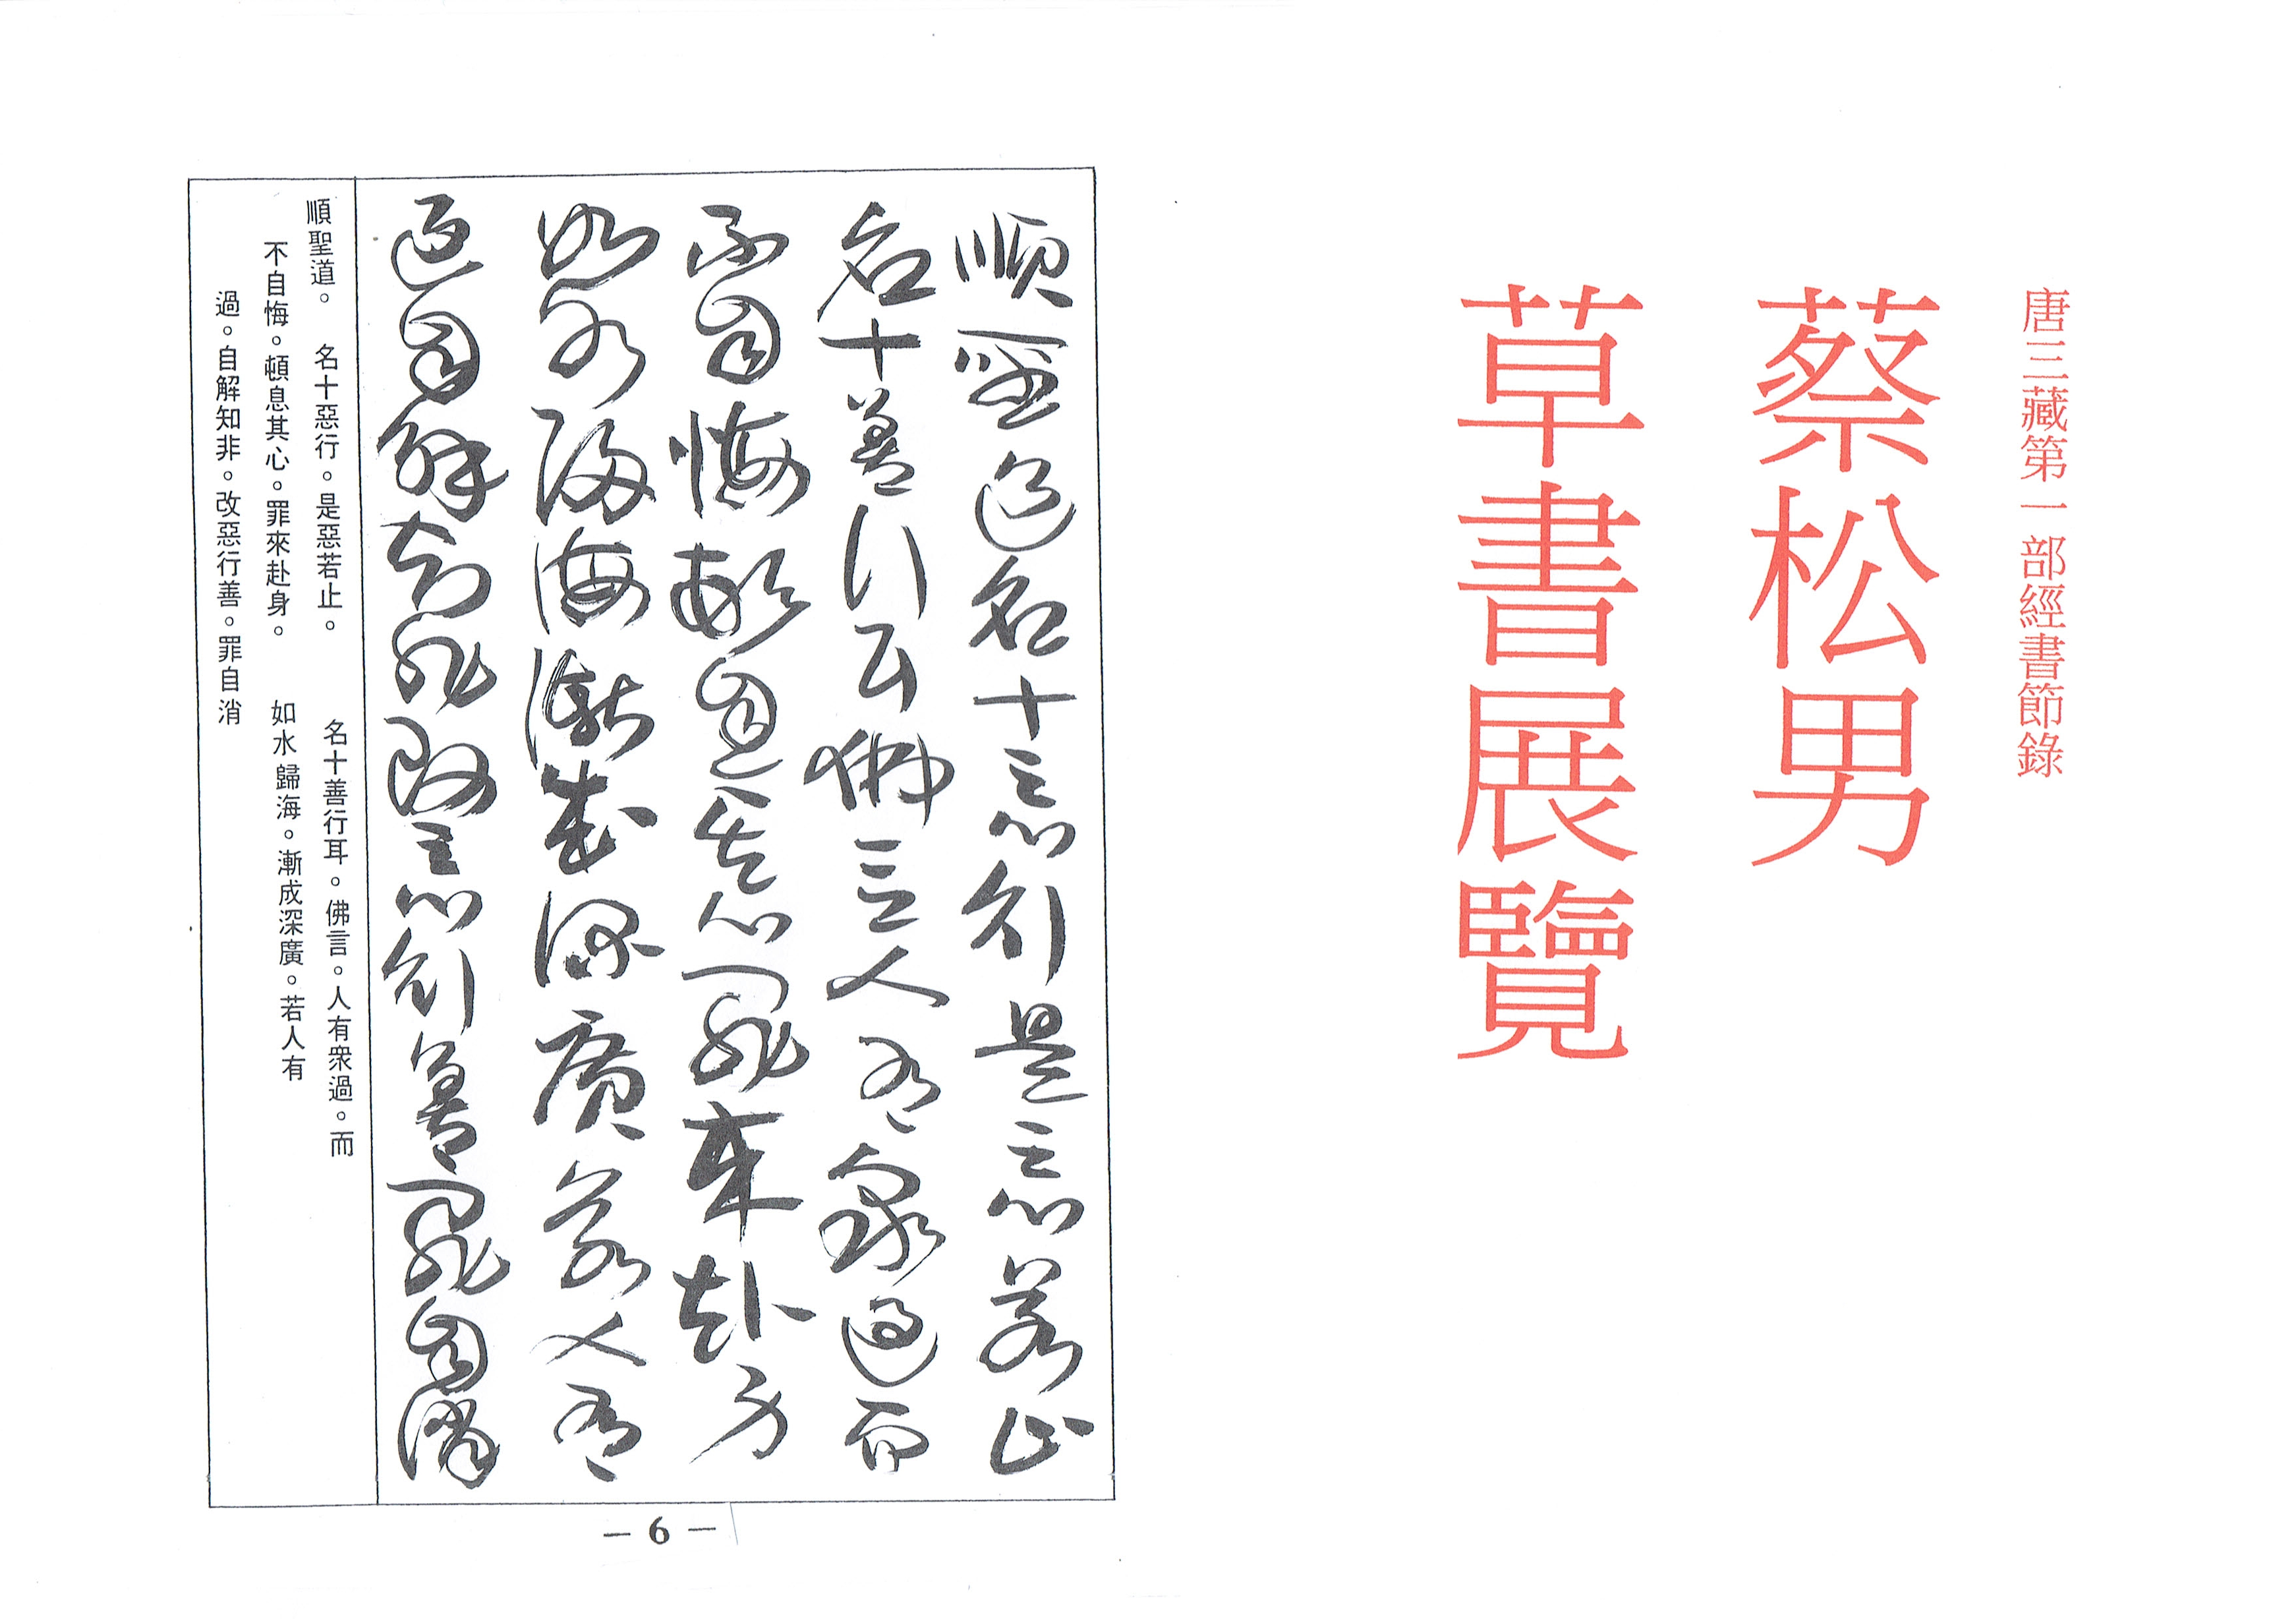 唐三藏第一部經書節錄
蔡松男
草書展覽
順聖道名十惡行是惡若止
名十善行耳佛言人有眾過而
不自悔頓息其心罪來赴身
如水歸海漸成深廣若人有
過自解知非改惡行善罪自消
順聖道。 名十惡行。是惡若止。 名十善行耳。佛言。人有衆過。而
不自悔。頓息其心。罪來赴身。 如水歸海。漸成深廣。若人有
過。自解知非。改惡行善。罪自消
— 6 —